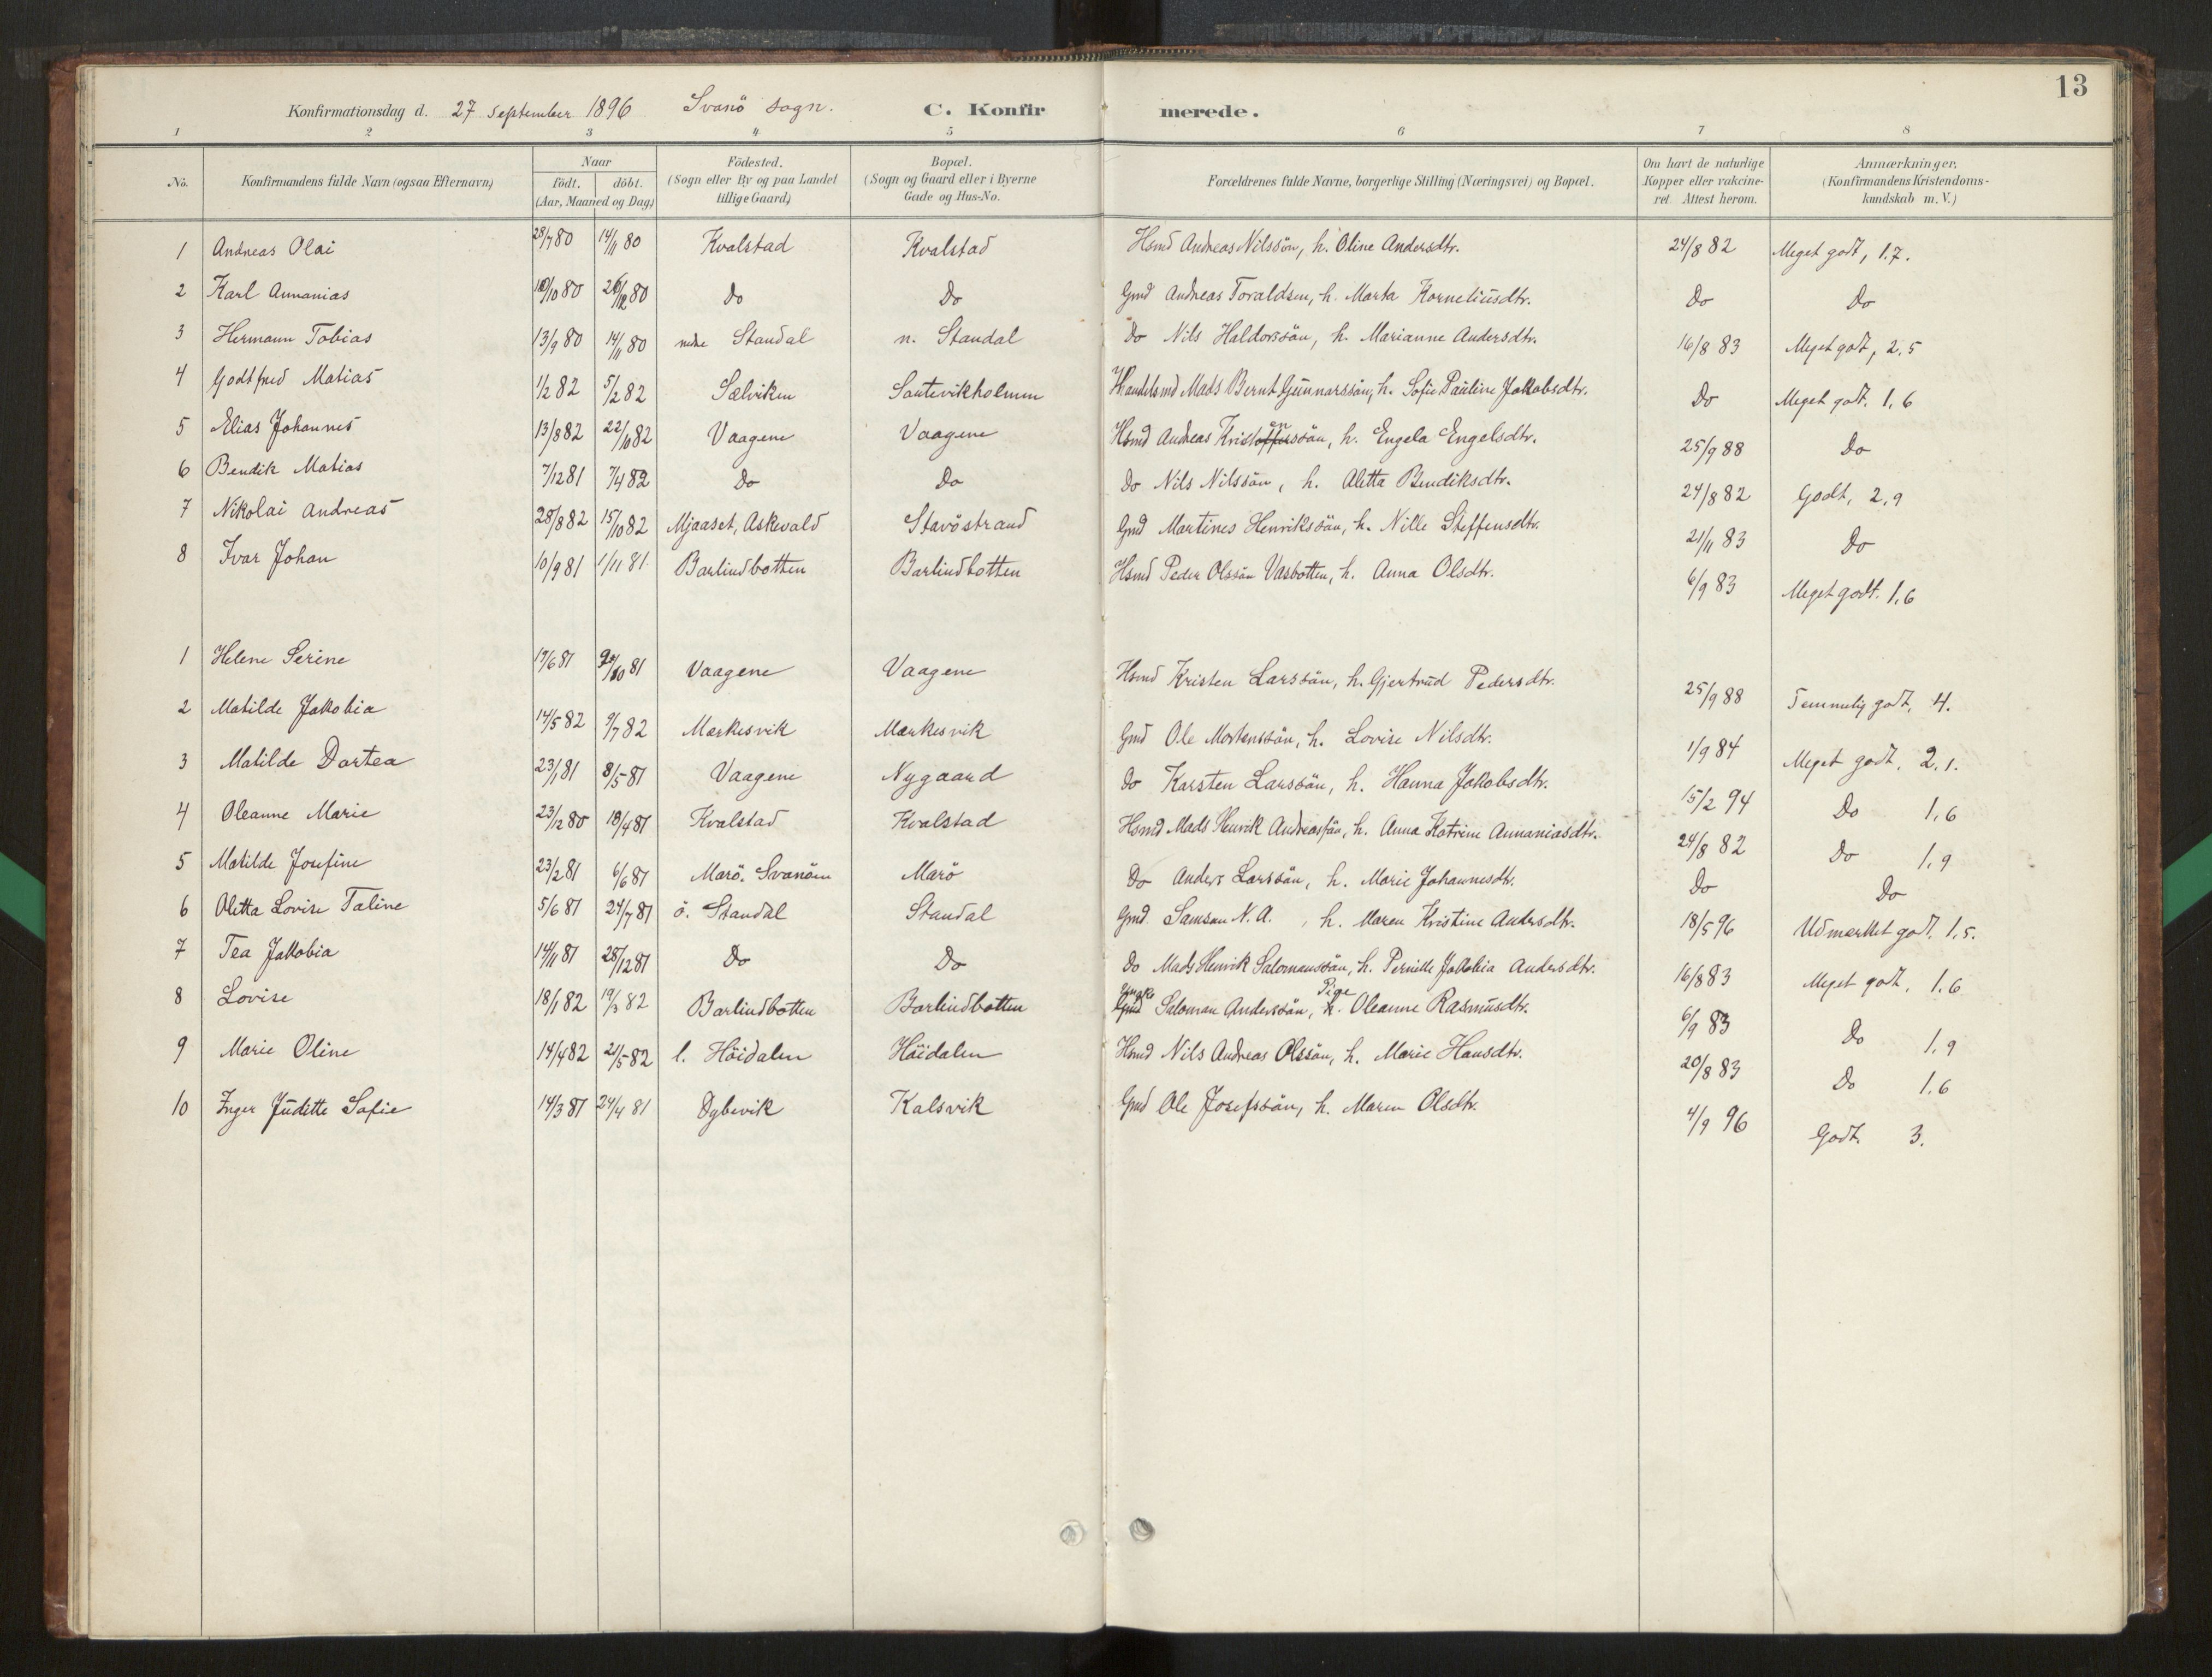 13
Konfirmationsdag d. 27 September 1896 Svanö Sogn. C. Konfirmerede.
1 2 3 4 5 6 7 8
No. Konfirmandens fulde Navn (ogsaa Efternavn) Naar födt. döbt. (Aar, Maaned og Dag) Födested. (Sogn eller By og paa Landet tillige Gaard) Bopæl. (Sogn og Gaard eller i Byerne Gade og Hus-No. Forældrenes fulde Navne, borgerlige Stilling (Næringsvei) og Bopæl. Om havt de naturlige Kopper eller vakcineret. Attest herom. Anmærkninger. (Konfirmandens Kristendomskundskab m. V.)
1 Andreas Olai 28/7 80 14/11 80 Kvalstad Kvalstad Hsmd Andreas Nilssön, h. Oline Andersdtr. 24/8 82 Meget godt, 1.7.
2 Karl Annanias 10/10 80 26/12 80 Do Do Gmd Andreas Toraldsen, h. Marta Korneliusdtr. Do Do
3 Hermann Tobias 13/9 80 14/11 80 nedre Standal n. Standal Do Nils Haldorssön, h. Marianne Andersdtr. 16/8 83 Meget godt, 2,5
4 Godtfred Matias 1/2 82 5/2 82 Sælviken Sautevikholmen Handelsmd Mads Bernt Gunnarssön, h. Sofie Pauline Jakobsdtr. Do Meget godt. 1,6
5 Elias Johannes 13/8 82 22/10 82 Vaagene Vaagene Hsmd Andreas Kristenssön, h. Engela Engelsdtr. 25/9 88 Do
6 Bendik Matias 7/12 81 7/4 82 Do Do Do Nils Nilssön, h. Aletta Bendiksdtr. 24/8 82 Godt, 2,9
7 Nikolai Andreas 28/8 82 15/10 82 Mjaaset, Askevold Stavöstrand Gmd Martines Henrikssön, h. Nille Steffensdtr. 21/11 83 Do
8 Ivar Johan 10/9 81 1/11 81. Barlindbotten Barlindbotten Hsmd Peder Olssön Vasbotten, h. Anna Olsdtr. 6/9 83 Meget godt. 1,6
1 Helene Serine 19/6 81 /10 81 Vaagene Vaagene Hsmd Kristen Larssön, h. Gjertrud Pedersdtr. 25/9 88 Temmelig godt, 4.
2 Matilde Jakobia 14/5 82 9/7 82 Markesvik Markesvik Gmd Ole Mortenssön, h. Lovise Nilsdtr. 1/9 84 Meget godt, 2.1.
3 Matilde Dortea 23/1 81 8/5 81 Vaagene Nygaard Do Karsten Larssön, h. Hanna Jakobsdtr. 15/2 94 Do 1,6
4 Oleanne Marie 23/12 80 18/4 81 Kvalstad Kvalstad Hsmd Mads Henrik Andreassön, h. Anna Katrine Annaniasdtr. 24/8 82 Do 1,9
5 Matilde Josefine 23/2 81 6/6 81 Marö, Svanöen Marö Do Anders Larssön, h. Marie Johannesdtr. Do Do
6 Aletta Lovise Taline 5/6 81 24/7 81 ö. Standal Standal Gmd. Samson N. A. , h. Maren Kristine Andersdtr. 18/5 96 Do Udmerket godt, 1,5.
7 Tea Jakobia 14/11 81 28/12 81 Do Do Do Mads Henrik Salomonssön, h. Pernille Jakobia Andersdtr. 16/8 83 Meget godt, 1,6
8 Lovise 18/1 82 19/3 82 Barlindbotten Barlindbotten Ungk. Salomon Anderssön, Pige Oleanne Rasmusdtr. 6/9 83 Do 1,9
9 Marie Oline 14/4 82 21/5 82 l. Höidalen Höidalen Hsmd Nils Andreas Olssön, h. Marie Hansdtr. 20/8 83 Do 1,6
10 Inger Juditte Sofie 14/3 81 24/4 81 Dybevik Kalsvik Gmd Ole Josefssön, h. Maren Olsdtr. 4/9 96 Godt 3.